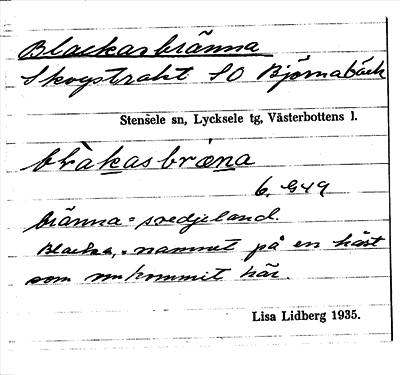 Blackasbränna
Skogstrakt SO Björnabäck
Stensele sn, Lycksele tg, Västerbottens l.
blakasbræna
6. G49
bränna = svedjeland.
Blacka, namnet på en häst
som omkommit här.
Lisa Lidberg 1935.